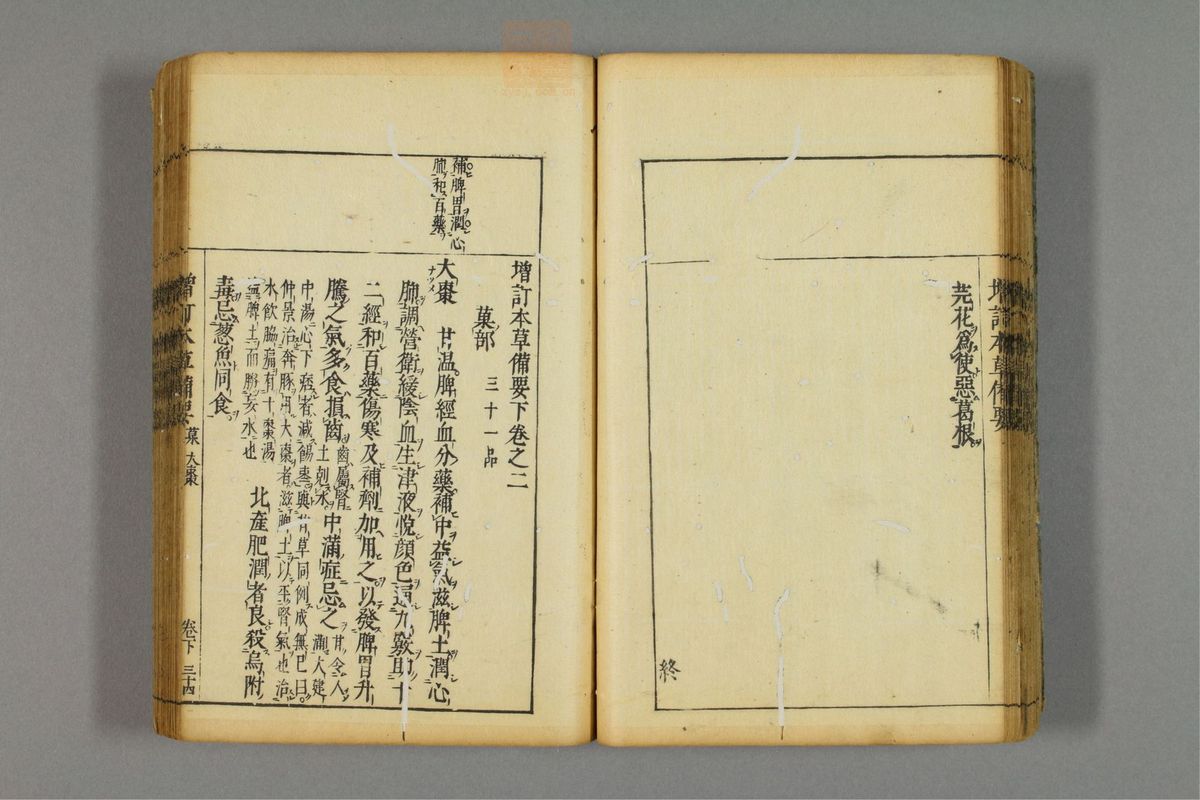 芫花爲使惡葛根
終
增訂本草備要
補脾胃潤心
肺和百藥
增訂本草備要下卷之二
菓部
三十一品
大棗 甘温脾經血分藥補中益氣滋脾土潤心
ナツメ
肺調營衛緩陰血生津液悅顔色通九竅助十
二經和百藥傷寒及補劑加用之以發脾胃升
騰之氣多食損齒 齒屬腎土剋水 中滿症忌之 甘令人滿大建
中湯心下痞者減餳棗與甘草同例成無已曰
仲景治奔豚用大棗者滋脾土以平腎氣也治
水飲脇痛有十棗湯
益脾土而勝妄水也 北產肥潤者良殺烏附
毒忌葱魚同食
增訂本草備要 菓 大棗 卷下 三十四